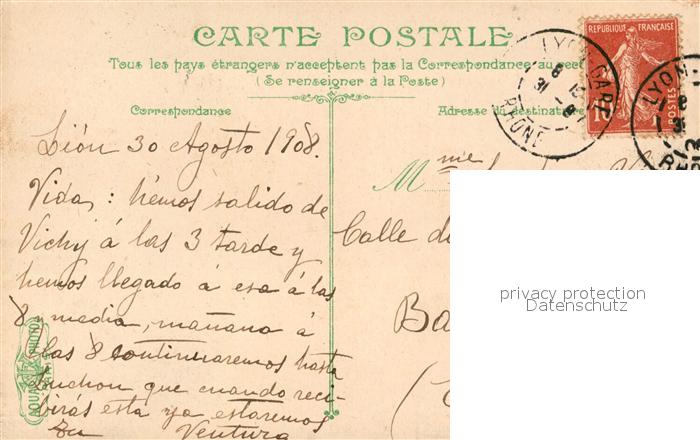 CARTE POSTALE
Tous les pays étrangers n'acceptent pas la Correspondance au rect
(Se renseigner à la Poste)
Correspondance
Adresse du destinataire
REPUBLIQUE FRANÇAISE
POSTES
10
LYON GARE
8 15
31 8
RHÔNE
LYON
8
31
Lión 30 Agosto 1908.
Vida: hemos salido de
Vichy á las 3 tarde y
hemos llegado á esa á las
8 y media, mañana á
las 8 continuaremos hasta
que cuando reci-
birás esta ya estaremos
Tu Ventura
AQUA PHOTO
Mme
Calle de
Ba
privacy protection
Datenschutz